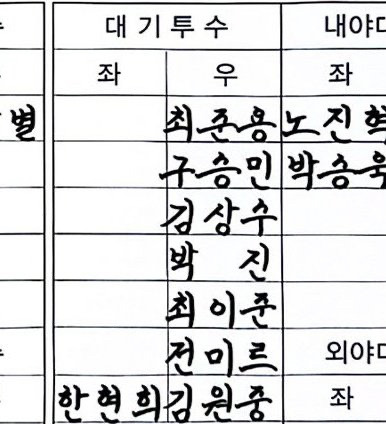 대기투수 내야
좌 우 좌
별 최준용 노진혁
구승민 박승욱
김상수
박 진
최이준
전미르 외야
한현희 김원중 좌